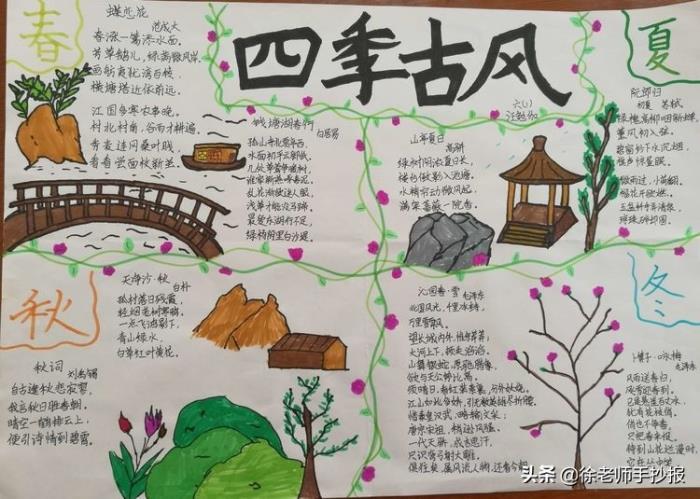 四季古风
六(1)
春
蝶恋花
范成大
春涨一篙添水面。
芳草鹅儿,绿满微风岸。
画舫夷犹湾百转,
横塘塔近依前远。
江国多寒农事晚。
村北村南,谷雨才耕遍。
秀麦连冈桑叶贱,
看看尝面收新茧。
钱塘湖春行
白居易
孤山寺北贾亭西,
水面初平云脚低。
几处早莺争暖树,
谁家新燕啄春泥。
乱花渐欲迷人眼,
浅草才能没马蹄。
最爱湖东行不足,
绿杨阴里白沙堤。
夏
山亭夏日
高骈
绿树阴浓夏日长,
楼台倒影入池塘。
水精帘动微风起,
满架蔷薇一院香。
阮郎归
初夏 苏轼
绿槐高柳咽新蝉。
薰风初入弦。
碧窗纱下水沉烟。
棋声惊昼眠。
微雨过,小荷翻。
榴花开欲然。
玉盆纤手弄清泉。
琼珠碎却圆。
秋
天净沙·秋
白朴
孤村落日残霞,
轻烟老树寒鸦,
一点飞鸿影下。
青山绿水,
白草红叶黄花。
秋词
刘禹锡
自古逢秋悲寂寥,
我言秋日胜春朝。
晴空一鹤排云上,
便引诗情到碧霄。
冬
沁园春·雪 毛泽东
北国风光,千里冰封,
万里雪飘。
望长城内外,惟余莽莽;
大河上下,顿失滔滔。
山舞银蛇,原驰蜡象,
欲与天公试比高。
须晴日,看红装素裹,分外妖娆。
江山如此多娇,引无数英雄尽折腰。
惜秦皇汉武,略输文采;
唐宗宋祖,稍逊风骚。
一代天骄,成吉思汗,
只识弯弓射大雕。
俱往矣,数风流人物,还看今朝
卜算子·咏梅
毛泽东
风雨送春归,
飞雪迎春到。
已是悬崖百丈冰,
犹有花枝俏。
俏也不争春,
只把春来报。
待到山花烂漫时,
她在丛中笑
头条 @徐老师手抄报